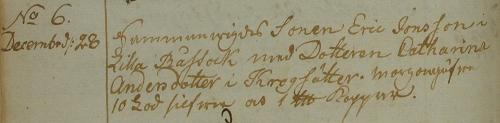 No 6.
Decembr: 28
Sammanwigdes Sonen Eric Jonsson i
Lilla Båssock med Dotteren Catharina
Andersdotter i Krogsätter. morgongåfwa
10 Lod silfwer och 1 Koppar.